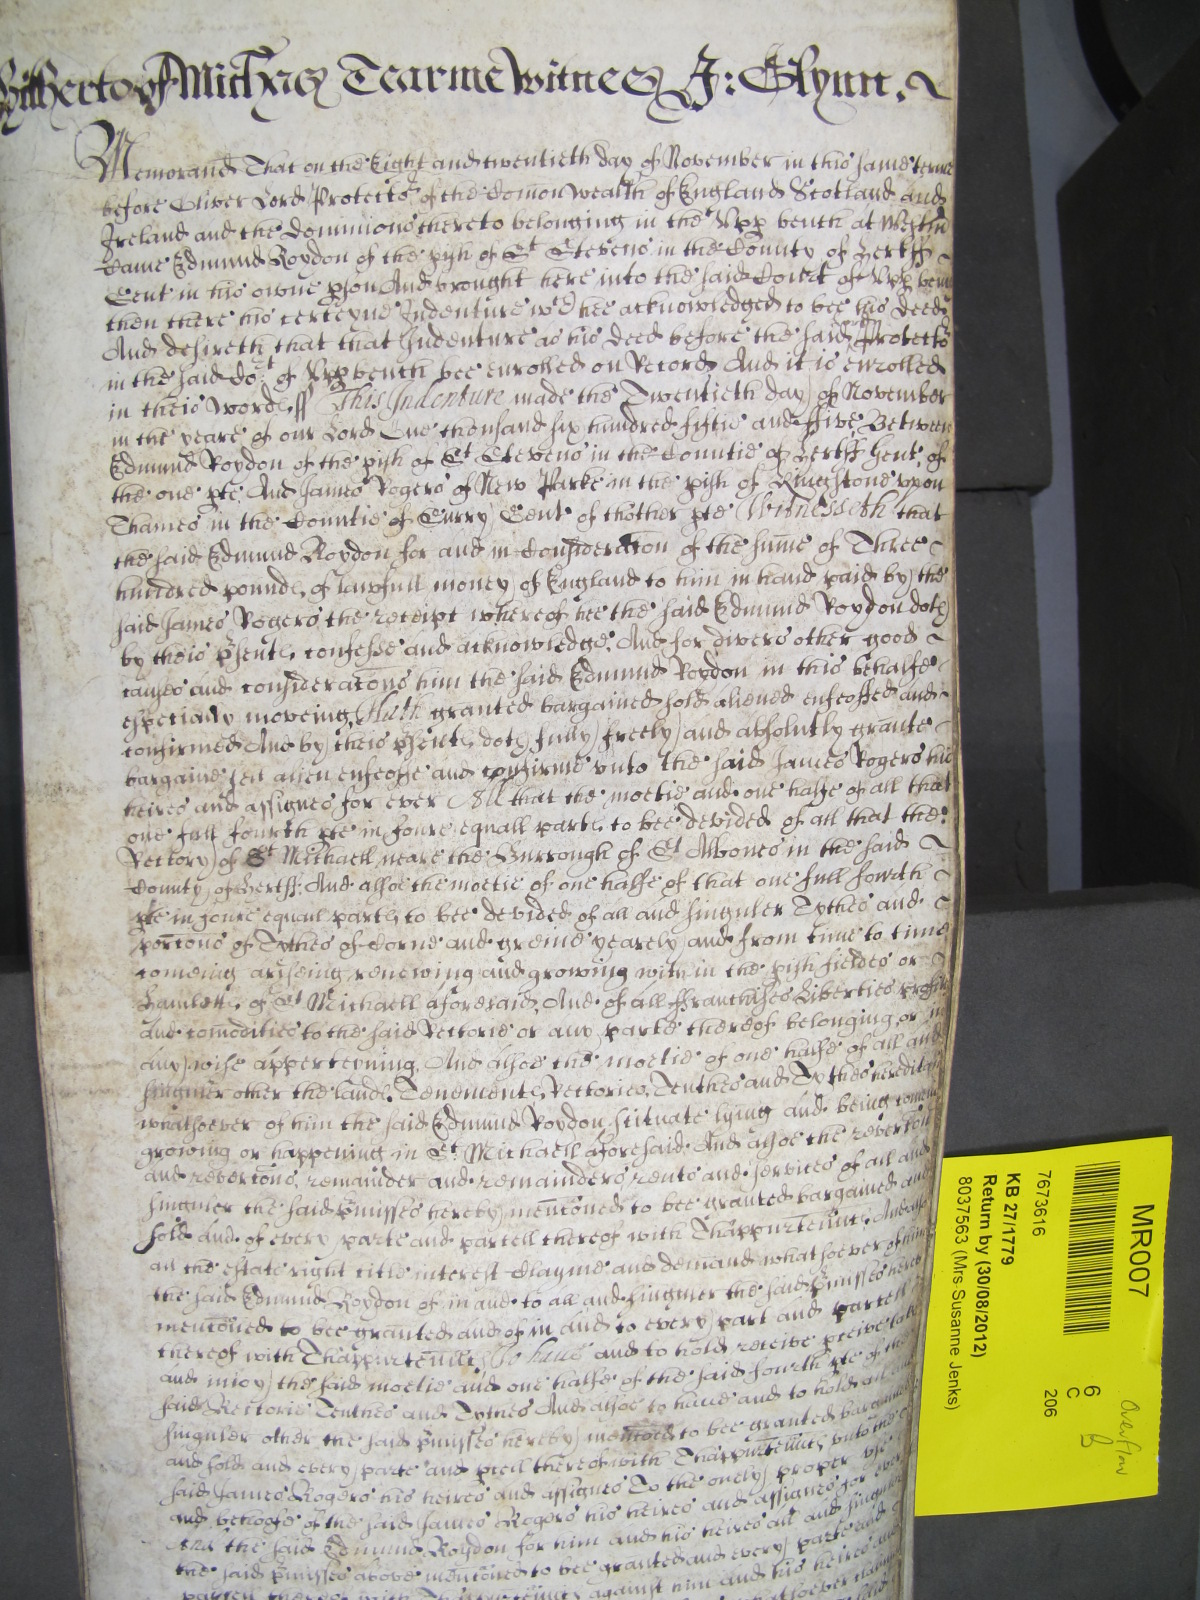 Hitherto of Mich'is Tearme witnes J: Glynn.
Memorand That on the Eight and twentieth day of November in this same terme
before Oliver Lord Protector of the Comon Wealth of England Scotland and
Ireland and the dominions thereto belonging in the Vpp bench at Westm
Came Edmund Roydon of the pish of St Stevens in the County of Hertff
Gent in his owne pson And brought here into the said Court of Vpp bench
then there his certeyne Indenture wch hee acknowledged to bee his Deed
And desireth that that Indenture as his deed before the said Protector
in the said Cort of Vpp bench bee enrolled on Record And it is enrolled
in theis words ss This Indenture made the Twentieth day of November
in the yeare of our Lord One thousand six hundred fiftie and ffive Betweene
Edmund Roydon of the pish of St Stevens in the Countie of Hertff Gent of
the one pte And James Rogers of New Parke in the pish of Kingstone vpon
Thames in the Countie of Surry Gent of thother pte Witnesseth that
the said Edmund Roydon for and in Consideracon of the sume of Three
hundred pounds of lawfull money of England to him in hand paid by the
said James Rogers the receipt whereof hee the said Edmund Roydon doth
by theis psents confesse and acknowledge And for divers other good
causes and consideracons him the said Edmund Roydon in this behalfe
especially moveing Hath granted bargained sold aliened enfeoffed and
confirmed And by theis psents doth fully freely and absolutly grante
bargaine sell alien enfeoffe and confirme vnto the said James Rogers his
heires and assignes for ever All that the moetie and one halfe of all that
one full fourth pte in foure equall parts to bee devided of all that the
Rectory of St Michaell neare the Burrough of St Albones in the said
County of Hertff And alsoe the moetie of one halfe of that one full fowrth
pte in foure equall parts to bee devided of all and singuler Tythes and
porcons of Tythes of Corne and greine yearely and from time to time
comeing ariseing renewing and growing within the pish fieldes or
Hamletts of St Michaell aforesaid And of all ffranchises Liberties profitts
and comodities to the said Rectorie or any parte thereof belonging or in
any wise apperteyning And alsoe the moetie of one halfe of all and
singuler other the lands Tenements Rectories Tenthes and Tythes hereditam
whatsoever of him the said Edmund Roydon scituate lying and being comeing
growing or happening in St Michaell aforesaid And alsoe the revercon
and revercons remainder and remainders rents and services of all and
singuler the said pmisses hereby menconed to bee granted bargained and
sold and of every parte and parcell thereof with Thappurtenncs And alsoe
all the estate right title interest Clayme and demand whatsoever of him
the said Edmund Roydon of in and to all and singuler the said pmisses hereby
menconed to bee granted and of in and to every part and parcell
thereof with Thappurtenncs To have and to hold receive pceive take
and injoy the said moetie and one halfe of the said fourth pte of the
said Rectorie Tenthes and Tythes And alsoe to have and to hold all and
singuler other the said pmisses hereby mencoed to bee granted bargained
and sold and every parte and pcell thereof with Thappurtenncs vnto the
said James Rogers his heires and assignes To the onely proper vse
and behoofe of the said James Rogers his heires and assignes for ever
And the said Edmund Roydon for him and his heires all and singuler
the said pmisses above menconed to bee granted and every parte and
parcell thereof with Thappurtenncs against him and his heires and
MR007
6
C
206
Overflow
7673616
KB 27/1779
Return by (30/08/2012)
8037563 (Mrs Susanne Jenks)